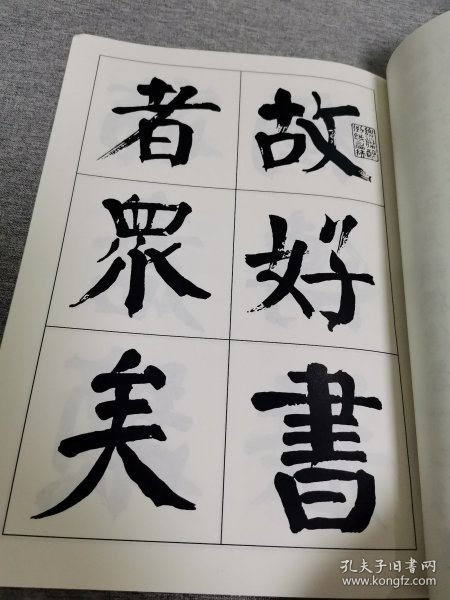 故好書
者眾矣
孔夫子旧书网
www.kongfz.com